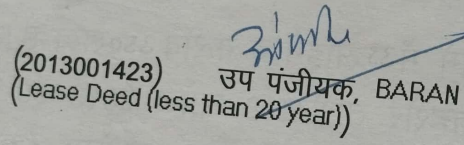 (2013001423) उप पंजीयक, BARAN
(Lease Deed (less than 20 year))